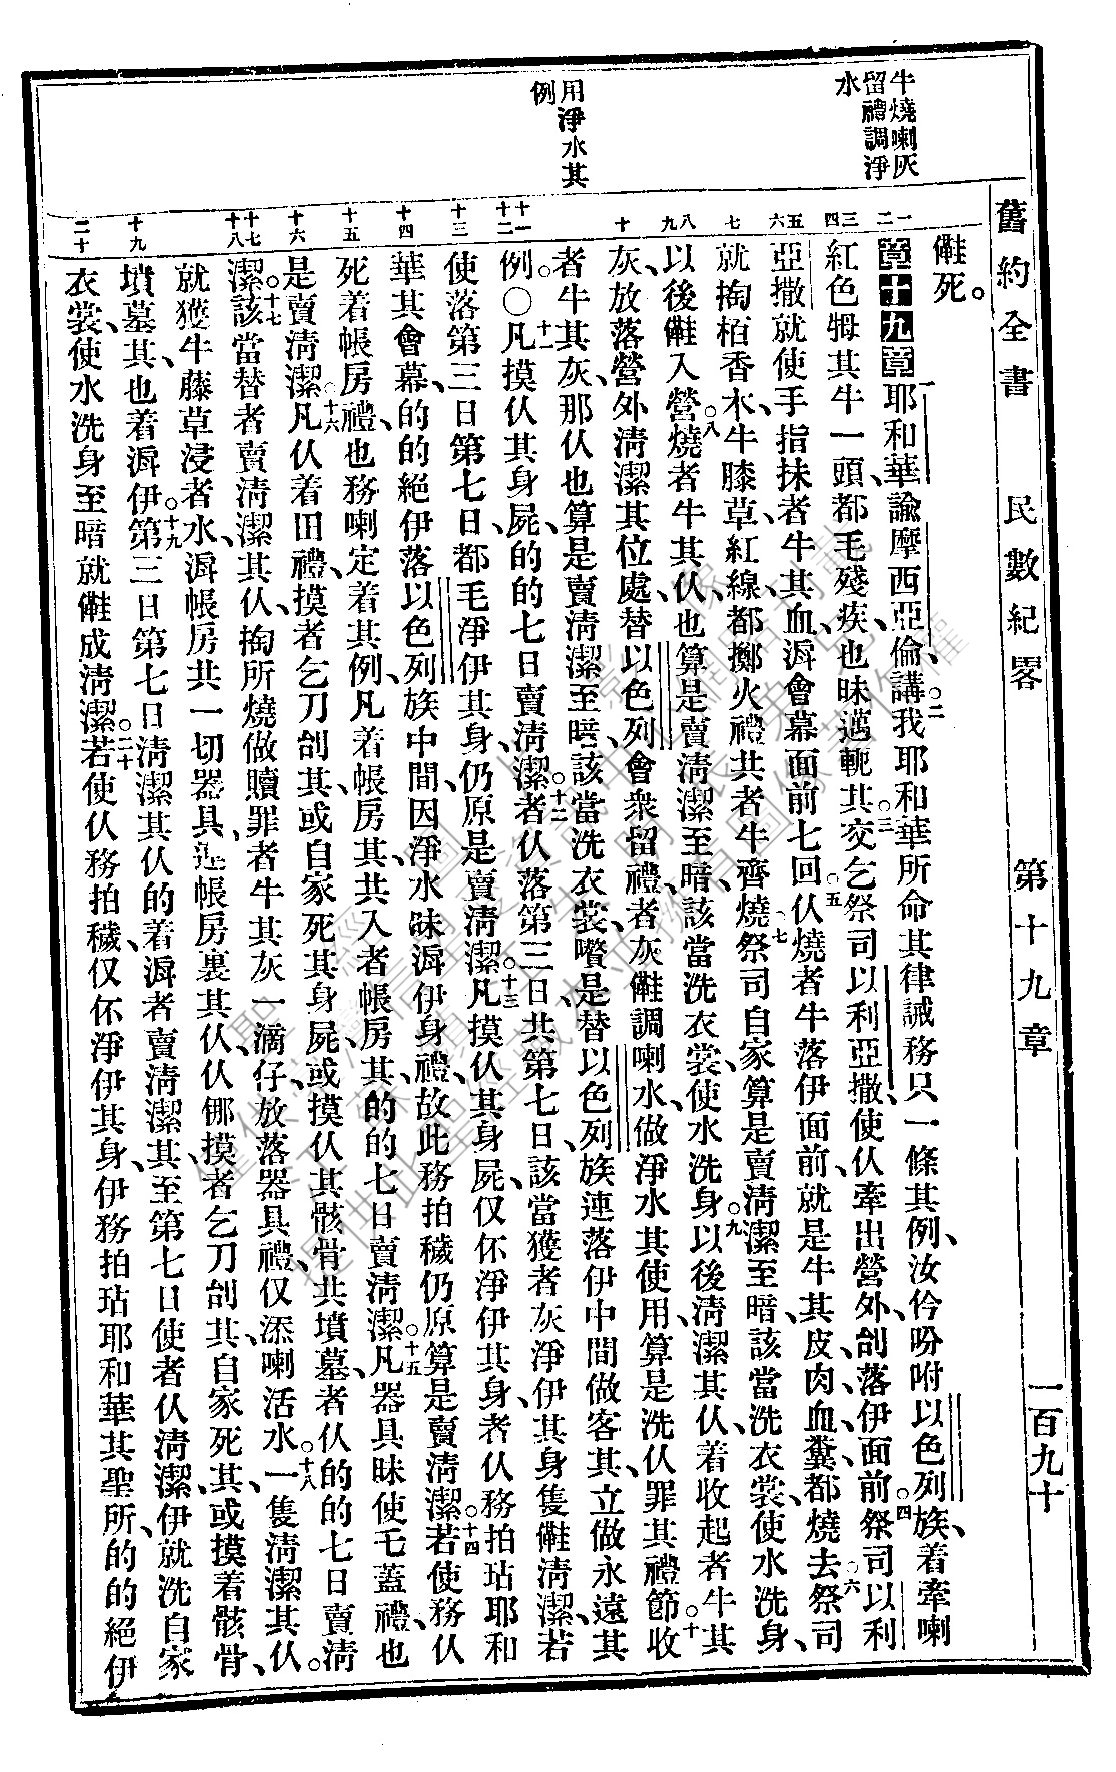 舊約全書 民數紀畧 第十九章 一百九十
牛燒喇灰
留禮調淨
水
用淨水其
例
一二
三四
五六
七
八九
十
十一
十二
十三
十四
十五
十六
十七
十八
十九
二十
㑚死。
第十九章 一耶和華諭摩西亞倫講、二我耶和華所命其律誡務只一條其例、汝仱吩咐以色列族、着牽喇
紅色𤚥其牛一頭、都毛殘疾、也昧邁軛其。三交乞祭司以利亞撒、使伙牽出營外、刣落伊面前。四祭司以利
亞撒就使手指抹者牛其血、㴇會幕面前七回。五伙燒者牛落伊面前、就是牛其皮肉血糞都燒去。六祭司
就掏栢香木、牛膝草、紅線、都擲火禮共者牛齊燒。七祭司自家算是賣清潔至暗、該當洗衣裳、使水洗身、
以後㑚入營。八燒者牛其伙、也算是賣清潔至暗、該當洗衣裳、使水洗身。九以後清潔其伙、着收起者牛其
灰、放落營外清潔其位處、替以色列會衆留禮、者灰㑚調喇水做淨水其使用、算是洗伙罪其禮節。十收
者牛其灰、那伙也算是賣清潔至暗、該當洗衣裳、嚽是替以色列族連落伊中間做客其、立做永遠其
例。〇十一凡摸伙其身屍、的的七日賣清潔。十二者伙落第三日共第七日、該當獲者灰淨伊其身隻㑚清潔、若
使落第三日第七日、都毛淨伊其身、仍原是賣清潔。十三凡摸伙其身屍、仅伓淨伊其身、者伙務拍玷耶和
華其會幕、的的絕伊落以色列族中間、因淨水昧㴇伊身禮、故此務拍穢、仍原算是賣清潔。十四若使務伙
死着帳房禮、也務喇定着其例、凡着帳房其、共入者帳房其、的的七日賣清潔。十五凡器具昧使毛蓋禮、也
是賣清潔。十六凡伙着田禮、摸者乞刀刣其、或自家死其身屍、或摸伙其骸骨共墳墓、者伙的的七日賣清
潔。十七該當替者賣清潔其伙、掏所燒做贖罪者牛其灰一滴仔、放落器具禮、仅添喇活水。十八一隻清潔其伙。
就獲牛藤草浸者水、㴇帳房共一切器具、連帳房裏其伙、伙㑚摸者乞刀刣其、自家死其、或摸着骸骨、
墳墓其、也着㴇伊。十九第三日第七日、清潔其伙的着㴇者賣清潔其、至第七日使者伙清潔、伊就洗自家
衣裳、使水洗身、至暗就㑚成清潔。二十若使伙務拍穢、仅伓淨伊其身、伊務拍玷耶和華其聖所、的的絕伊